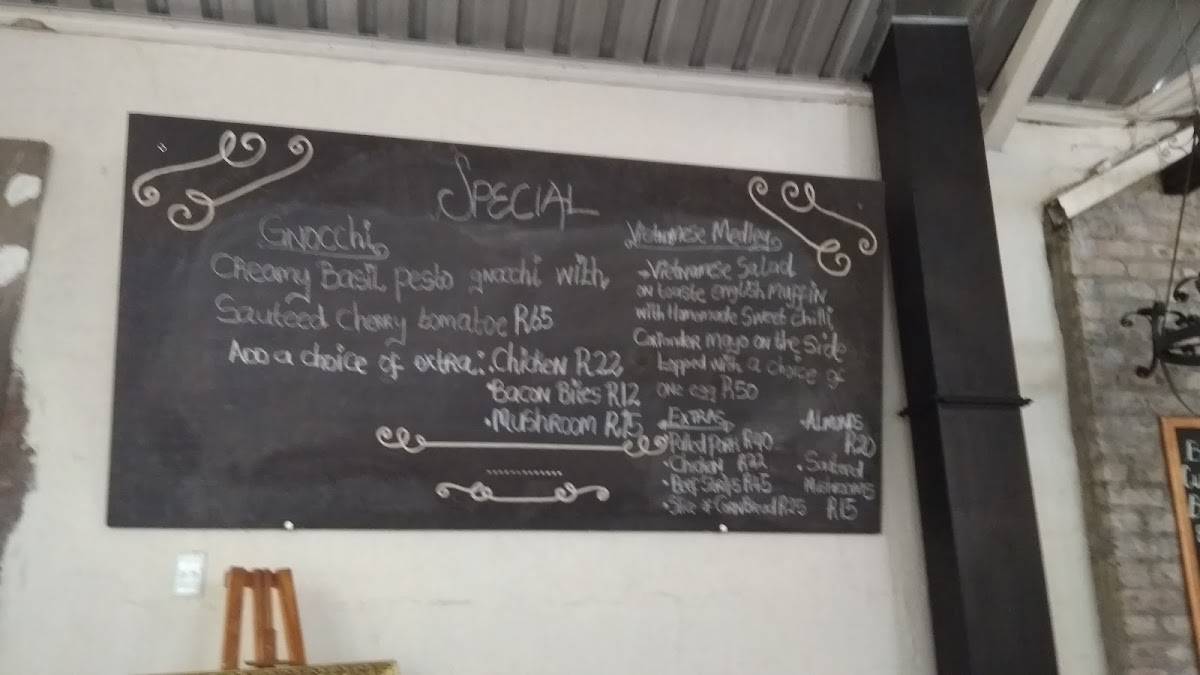 SPECIAL
GNOCCHI
CREAMY BASIL pesto gnochi with
Sauteed Cherry tomatoe R65
ADD a choice of extra: . Chicken R22
. BACON Bites R12
. MUSHROOM R15
Vietnamese Medley
- Vietnamese Salad
on toaste english Muffin
with Homemade Sweet chilli
Coriander mayo on the side
topped with a choice of
one egg R50
. EXTRAS
. Pulled Pork R40
. Chicken R22
. Beef Strips R45
. Slice of CornBread R25
. ALMONDS
R20
. Sauteed
Mushrooms
R15